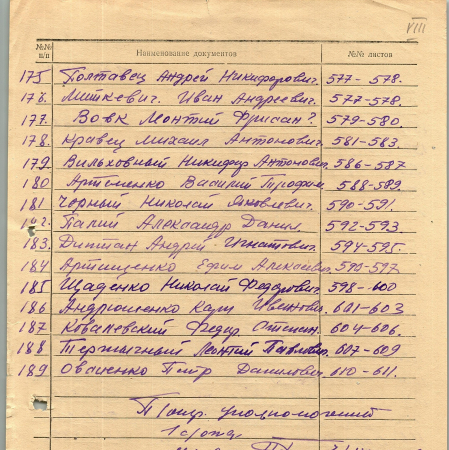 VIII
№№ п/п Наименование документов №№ листов
175 Полтавец Андрей Никифорович. 577-578.
176. Миткевич. Иван Андреевич. 577-578.
177. Вовк Леонтий ? 579-580.
178. Кравец Михаил Антонович. 581-583.
179. Вильховный Никифор Антонович. 586-587
180 Артеменко Василий Трофим. 588-589.
181 Чорный Николай Яковлевич. 590-591.
182. Палий Александр Данил. 592-593.
183. Андрей Игнатович. 594-595.
184 Артющенко Ефим Алексеевич. 595-597
185 Щаденко Николай Федорович. 598-600
186 Андрющенко Карп Иванович. 601-603
187 Ковалевский Федор 604-606.
188 Леонтий Павлович. 607-609
189 Овдиенко Петр Данилович. 610-611.
уполномоченный